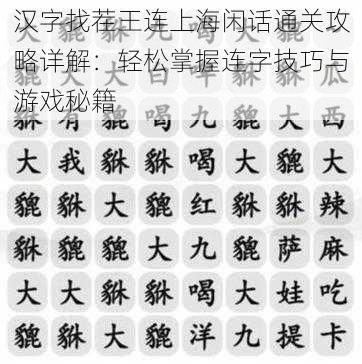 汉字找茬王连上海闲话通关攻
略详解：轻松掌握连字技巧与
游戏秘籍
貅 有 貔 喝 九 貔 大 西
大 我 貅 貅 喝 大 貔 大
貔 貅 大 貔 红 貅 貅 辣
貅 貔 貔 大 九 貔 萨 麻
大 大 貅 貅 喝 大 娃 吃
貔 貅 大 貔 洋 九 提 卡